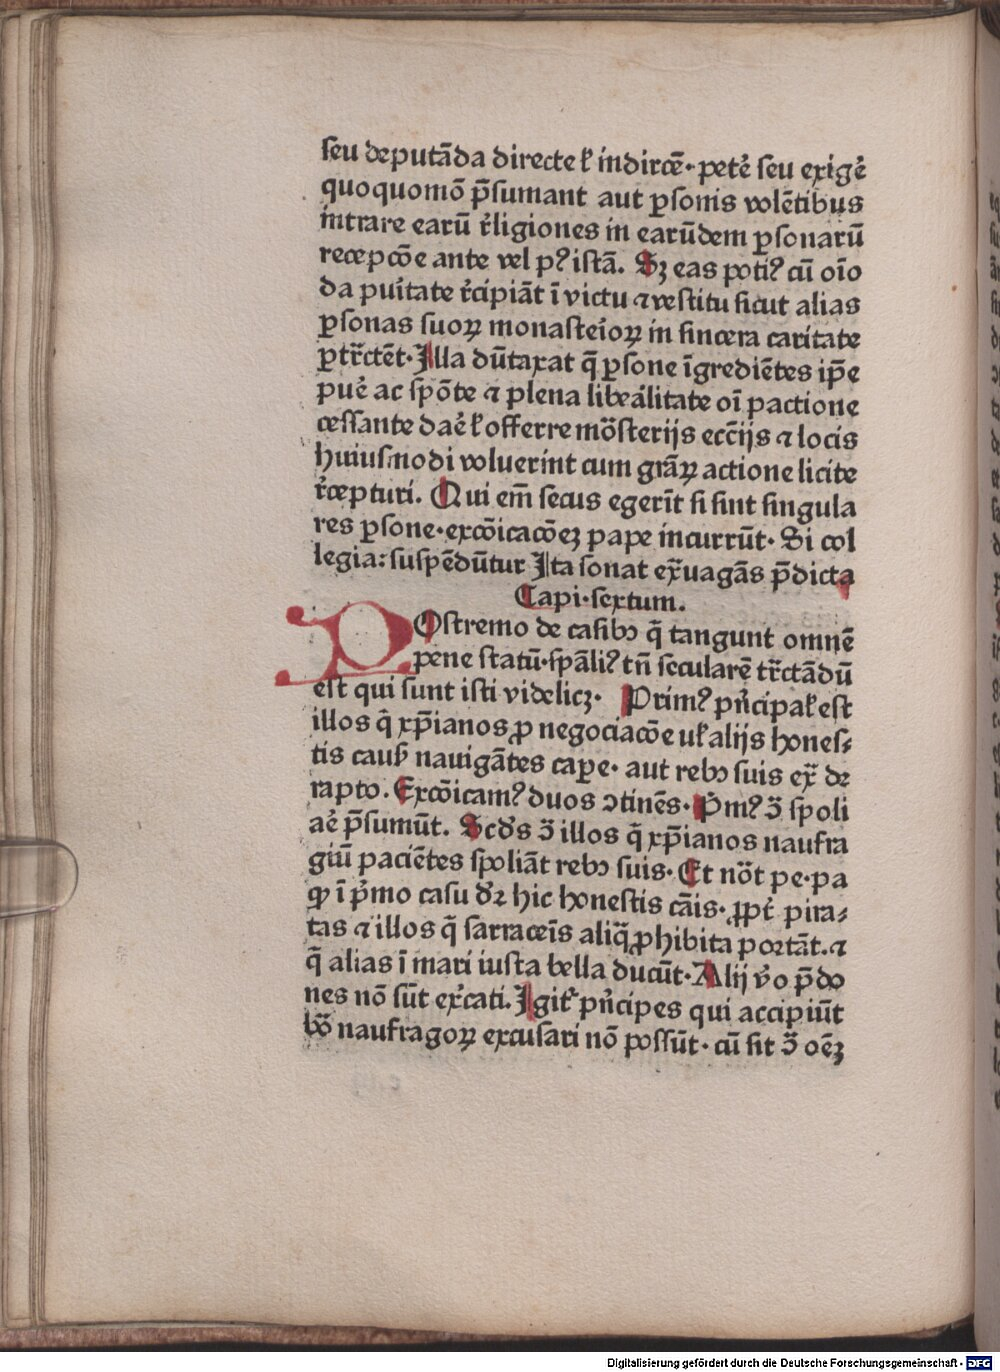 seu deputāda directe ł indircē· petē seu exigē
quoquomō p̄sumant aut ꝑsonis volētibus
intrare earū r̄ligiones in earūdem ꝑsonarū
recepcōe ante vel pꝰ istā. Sꝫ eas potiꝰ cū oīo
da puritate r̄cipiāt ī victu ⁊ vestitu sicut alias
ꝑsonas suoꝝ monasteīoꝝ in sincera caritate
ꝑtr̄ctēt· Illa dūtaxat q̄ ꝑsone īgrediētes ip̄e
puē ac spōte ⁊ plena libeālitate oī pactione
cessante daē ł offerre mōsterijs ecc̄ijs ⁊ locis
huiusmodi voluerint cum grāꝝ actione licite
r̄cepturi. Qui em̄ secus egerīt si sint singula
res ꝑsone· excōicacōeꝫ pape incurrūt· Si col
legia: suspēdūtur Ita sonat ex̄uagās p̄dicta
Capi· sextum.
POstremo de casibꝫ q̄ tangunt omnē
pene statū· sp̄aliꝰ tn̄ secularē tr̄ctādū
est qui sunt isti videlicꝫ· Primꝰ pn̄cipał est
illos q̄ xp̄ianos ꝓ negociacōe uł alijs hones⸗
tis causꝭ nauigātes caꝑe· aut rebꝫ suis ex̄ de
rapto. Excōicamꝰ duos ↄtinēs· P̄mꝰ ↄ̄ spoli
aē p̄sumūt. Scd̄s ↄ̄ illos q̄ xp̄ianos naufra
giū paciētes spoliāt rebꝫ suis· Et nōt pe· pa
ꝙ ī p̄mo casu dr̄ hic honestis cāis· ꝓpt̄ pira⸗
tas ⁊ illos q̄ sarraceīs aliq̄ ꝓhibita portāt. ⁊
q̄ alias ī mari iusta bella ducūt· Alij v̄o p̄do
nes nō sūt ex̄cati. Igit᷑ pn̄cipes qui accipiūt
bō naufragoꝝ excusari nō possūt· cū sit ↄ̄ oēꝫ
Digitalisierung gefördert durch die Deutsche Forschungsgemeinschaft - DFG